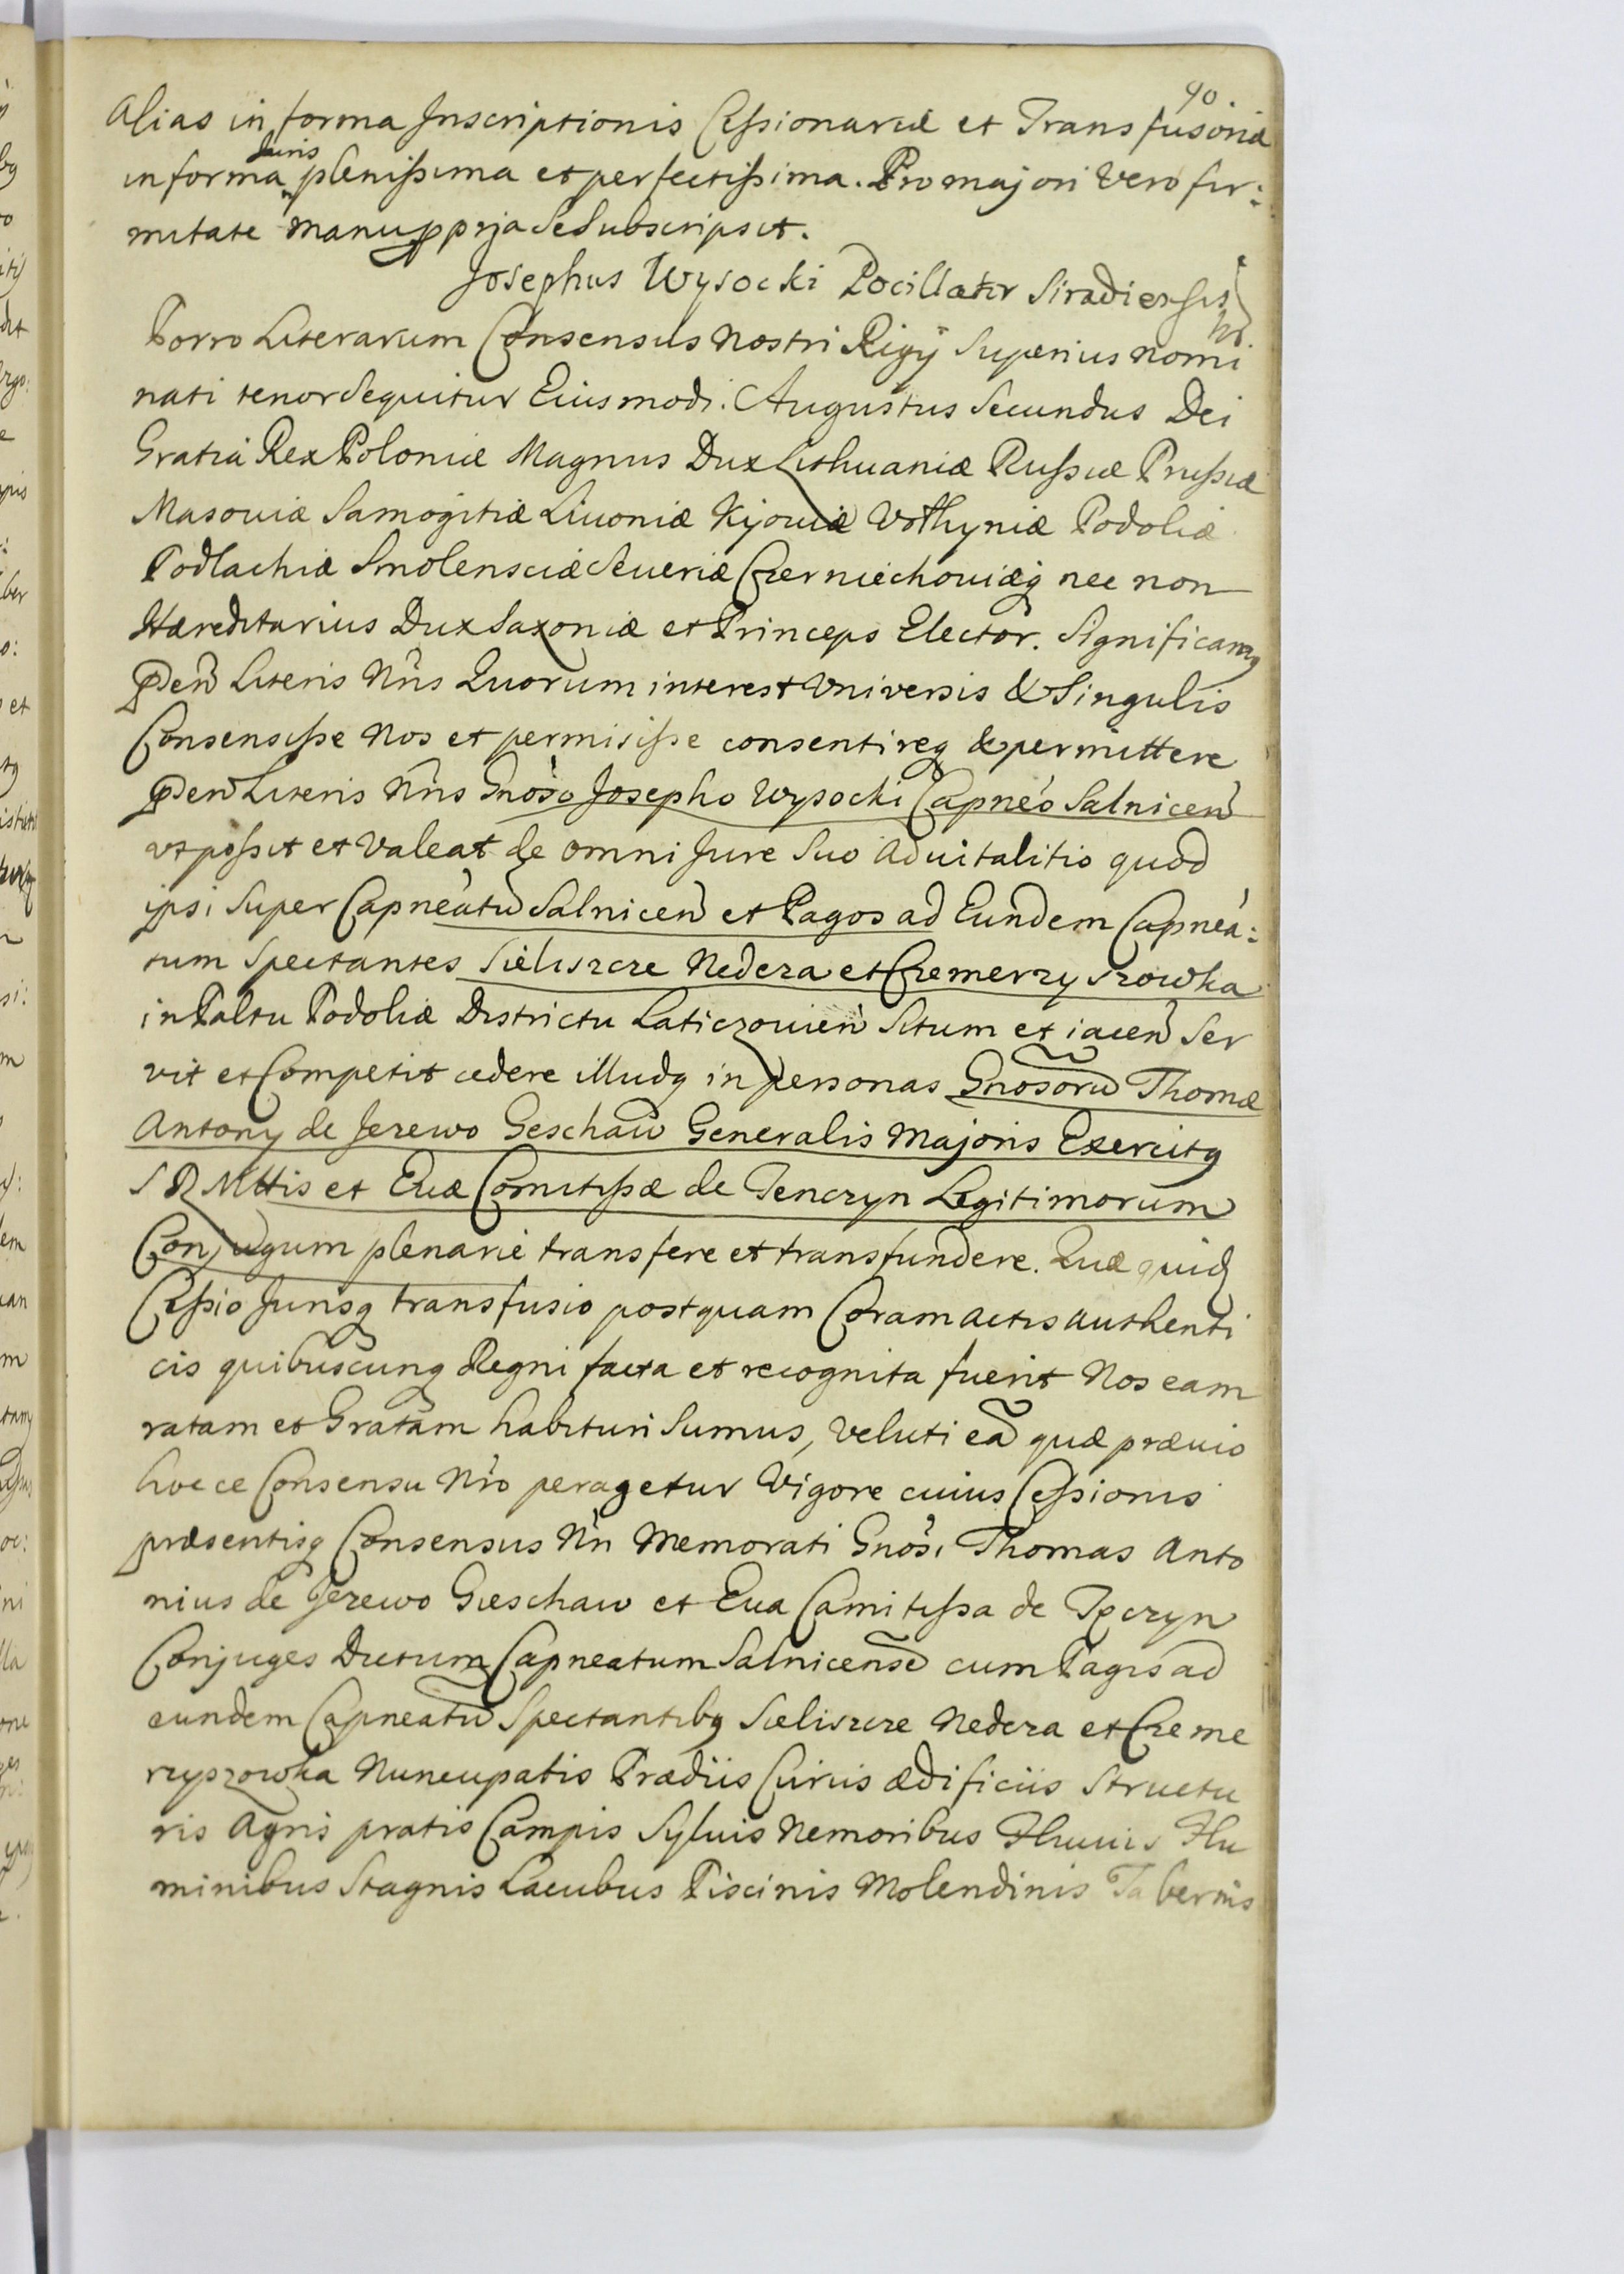 40.
Alias in forma Inscriptionis Cessionariæ et Transfusoriæ
in forma Iuris plenissima et perfectissima. Pro majori vero fir:
mitate manu ppria se subscripsit.
Josephus Wysocki Pocillator Siradiensis
Porro Literarum Consensus Nostri Regij Superius nomi
nati tenor sequitur Eiusmodi. Augustus Secundus Dei
Gratia Rex Poloniæ Magnus Dux Lithuaniæ Russiæ Prussiæ
Masouiæ Samogitiæ Liuoniæ Kijouiæ Volhyniæ Podoliæ
Podlachiæ Smolensciæ Seueriæ Czerniechouiæq nec non
Hæreditarius Dux Saxoniæ et Princeps Elector. Significamq
Pden Literis Nris Quorum interest Universis & Singulis
Consensisse Nos et permisisse consentireq & permittere
Pden Literis Nris Gnoso Josepho Wysocki Capneo Salnicen
ut possit et valeat de omni Jure Suo Aduitalitio quod
ipsi Super Capneatu Salnicen et Pagos ad Eundem Capnea:
tum Spectantes Sieliszcze Nedeza et Czemerzyszowka
in Paltu Podoliæ Districtu Laticzouien Situm et iacen Ser
vit et Competit cedere illudq in personas Gnosoru Thomæ
Antony de Jerewo Geschaw Generalis Majoris Exercitq
S R Mttis et Euæ Comitissæ de Tenczyn Legitimorum
Conjugum plenarie transfere et transfundere. Quæ quid
Cessio Jurisq transfusio postquam Coram actis authenti
cis quibuscunq Regni facta et recognita fuerit Nos eam
ratam et Gratam habituri Sumus, veluti ea quæ præuio
hocce Consensu Nro peragetur Vigore cuius Cessionis
præsentisq Consensus Nri Memorati Gnosi Thomas Anto
nius de Jerewo Gieschaw et Eua Camitissa de Tęczyn
Conjuges Dictum Capneatum Salnicense cum Pagis ad
eundem Capneatu Spectantibq Sieliszcze Nedeza et Czeme
rzyszowka Nuncupatis Prædiis Curiis ædificiis Structu
ris Agris pratis Campis Syluis Nemoribus Fluuiis Flu
minibus Stagnis Lacubus Piscinis Molendinis Tabernis